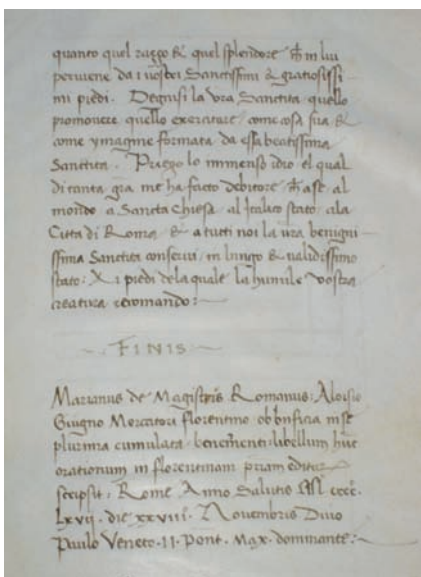 quanto quel raggo & quel splendore ch̄ in lui
perviene da i vostri Sanctissimi & gratiosissi-
mi piedi. Degnisi la vr̄a Sanctita quello
promovere quello exercitare come cosa sua &
come ymagine formata da essa beatissima
Sanctita. Priego lo immenso idio el qual
di tanta gr̄a me ha facto debitore ch̄ ase al
mondo a Sancta Chiesa al Italico stato ala
Citta di Roma & a tutti noi la vr̄a benigni
ssima Sanctita conservi in lungo & validissimo
stato: Ai piedi dela quale la humile vostra
creatura recomando:~
~ FINIS ~
Marianus de Magistris Romanus: Aloisio
Giugno Mercatori florentino ob bn̄ficia in se
plurima cumulata benem̄enti libellum hūc
orationum in florentinam priam editur
scripsit: Rome Anno Salutis M. cccc.
Lxvii. die xxviii. Novembris Divo
Paulo Veneto .II. Pont. Max. dominante:~